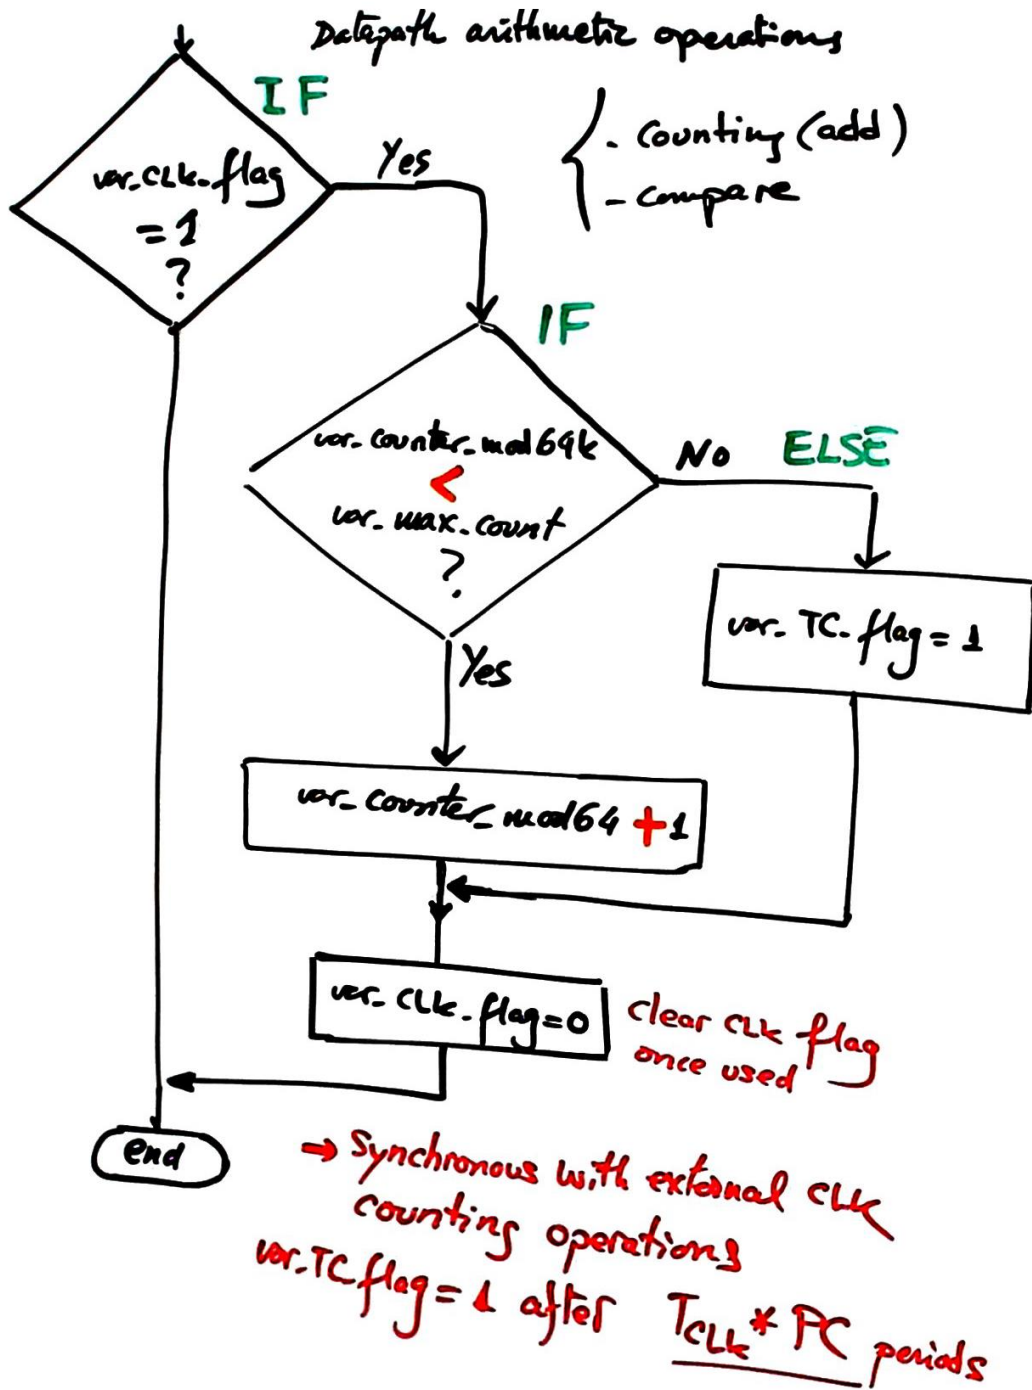 Datapath arithmetic operations
IF
- counting (add)
- compare
var_CLK_flag
= 1
?
Yes
IF
var_counter_mod64k
<
var_max_count
?
No ELSE
var_TC_flag = 1
Yes
var_counter_mod64 + 1
var_CLK_flag = 0
clear CLK flag
once used
end
→ Synchronous with external CLK
counting operations
var_TC flag = 1 after TCLK * PC periods